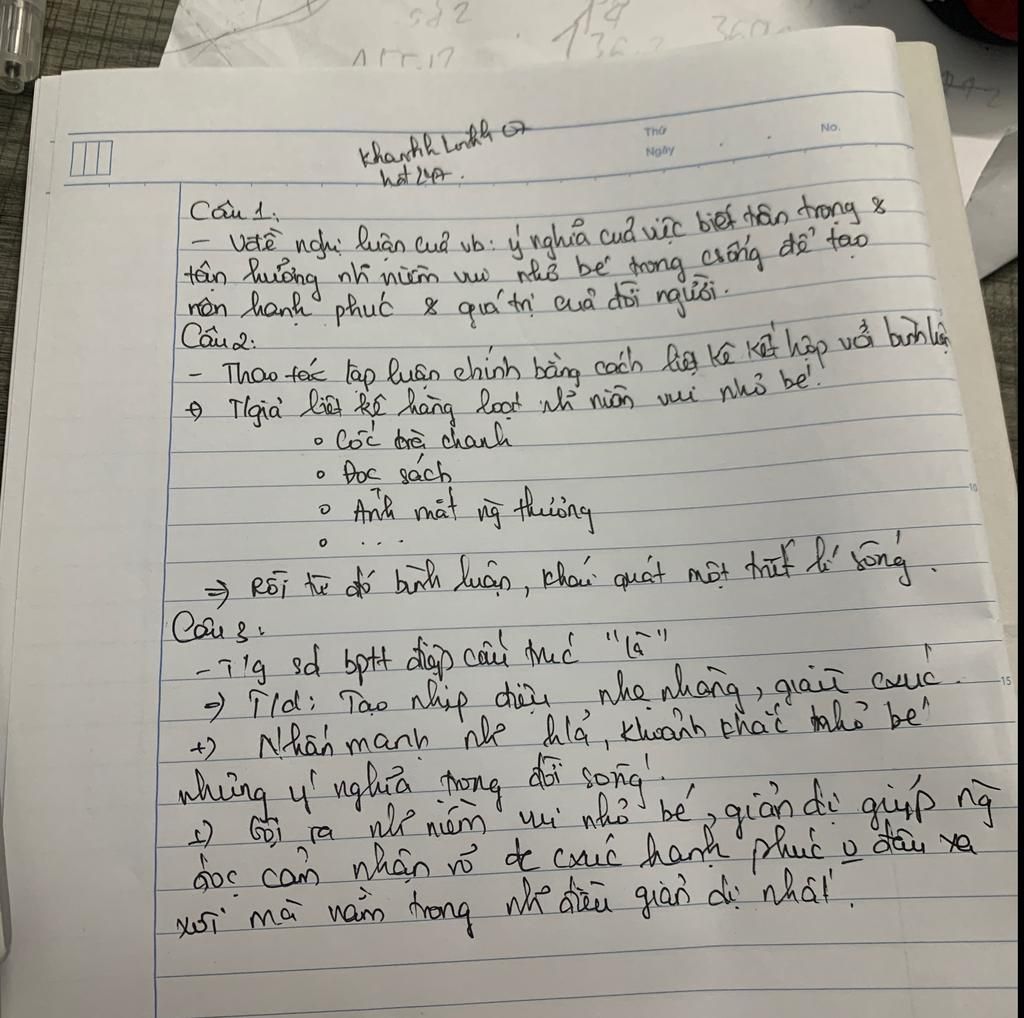 sd 2
Thứ
Ngày
No.
Câu 1:
- Vđề nghị luận cuả vb: ý nghĩa cuả việc biết trân trọng &
tận hưởng nh~ niềm vui nhỏ bé trong csống để tạo
nên hạnh phúc & giá trị cuả đời người.
Câu 2:
- Thao tác lập luận chính bằng cách liệt kê kết hợp với bình luận
+) T/giả liệt kê hàng loạt nh~ niềm vui nhỏ bé!
o Cốc trà chanh
o Đọc sách
o Ánh mắt ng thương
o ...
=> Rồi từ đó bình luận, khái quát một triết lí sống.
Câu 3:
- T/g sd bptt điệp cấu trúc "là"
=> T/d: Tạo nhịp điệu nhẹ nhàng, giàu cxúc.
+) Nhấn mạnh nh~ khoảnh khắc nhỏ bé
nhưng ý nghĩa trong đời sống.
+) Gợi ra nh~ niềm vui nhỏ bé, giản dị giúp ng
đọc cảm nhận rõ đc cxúc hạnh phúc o đâu xa
xôi mà nằm trong nh~ điều giản dị nhất.
10
15